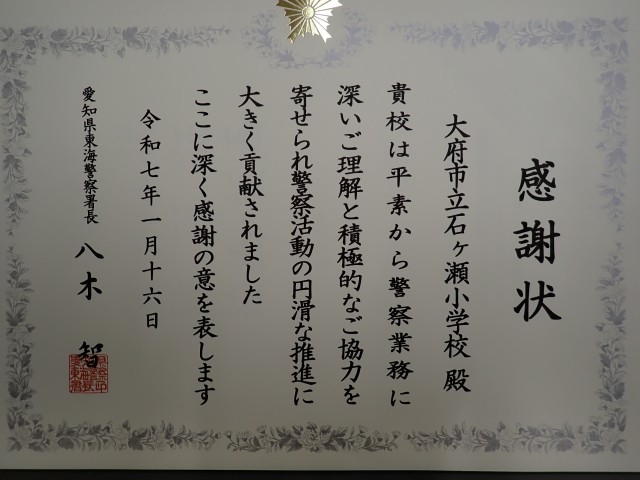 感謝状
大府市立石ヶ瀬小学校 殿
貴校は平素から警察業務に
深いご理解と積極的なご協力を
寄せられ警察活動の円滑な推進に
大きく貢献されました
ここに深く感謝の意を表します
令和七年一月十六日
愛知県東海警察署長 八木 智